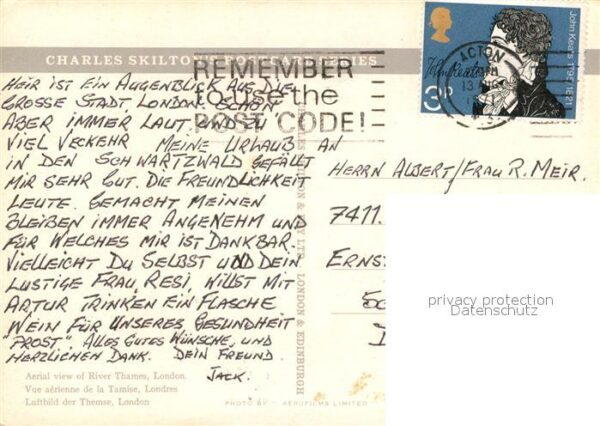 CHARLES SKILTON'S POSTCARD SERIES
REMEMBER
to use the
POST CODE!
ACTON
John Keats 1795-1821
3P
HEIR IST EIN AUGENBLICK AUS DIE
GROSSE STADT, LONDON. SCHÖN
ABER IMMER LAUT UND ZU
VIEL VECKEHR MEINE URLAUB AN
IN DEN SCHWARTZWALD GEFÄLLT
MIR SEHR GUT. DIE FREUNDLICHKEIT
LEUTE. GEMACHT MEINEN
BLEIBEN IMMER ANGENEHM UND
FÜR WELCHES MIR IST DANKBAR.
VIELLEICHT DU SELBST UND DEIN
LUSTIGE FRAU, RESI, WILLST MIT
ARTUR TRINKEN EIN FLASCHE
WEIN FÜR UNSERES GESUNDHEIT
"PROST". ALLES GUTES WÜNSCHE, UND
HERZLICHEN DANK. DEIN FREUND.
JACK.
HERRN ALBERT/FRAU R. MEIR.
7411.
ERNS
privacy protection
Datenschutz
LTD. LONDON & EDINBURGH
Aerial view of River Thames, London.
Vue aérienne de la Tamise, Londres
Luftbild der Themse, London
PHOTO BY - AEROFILMS LIMITED